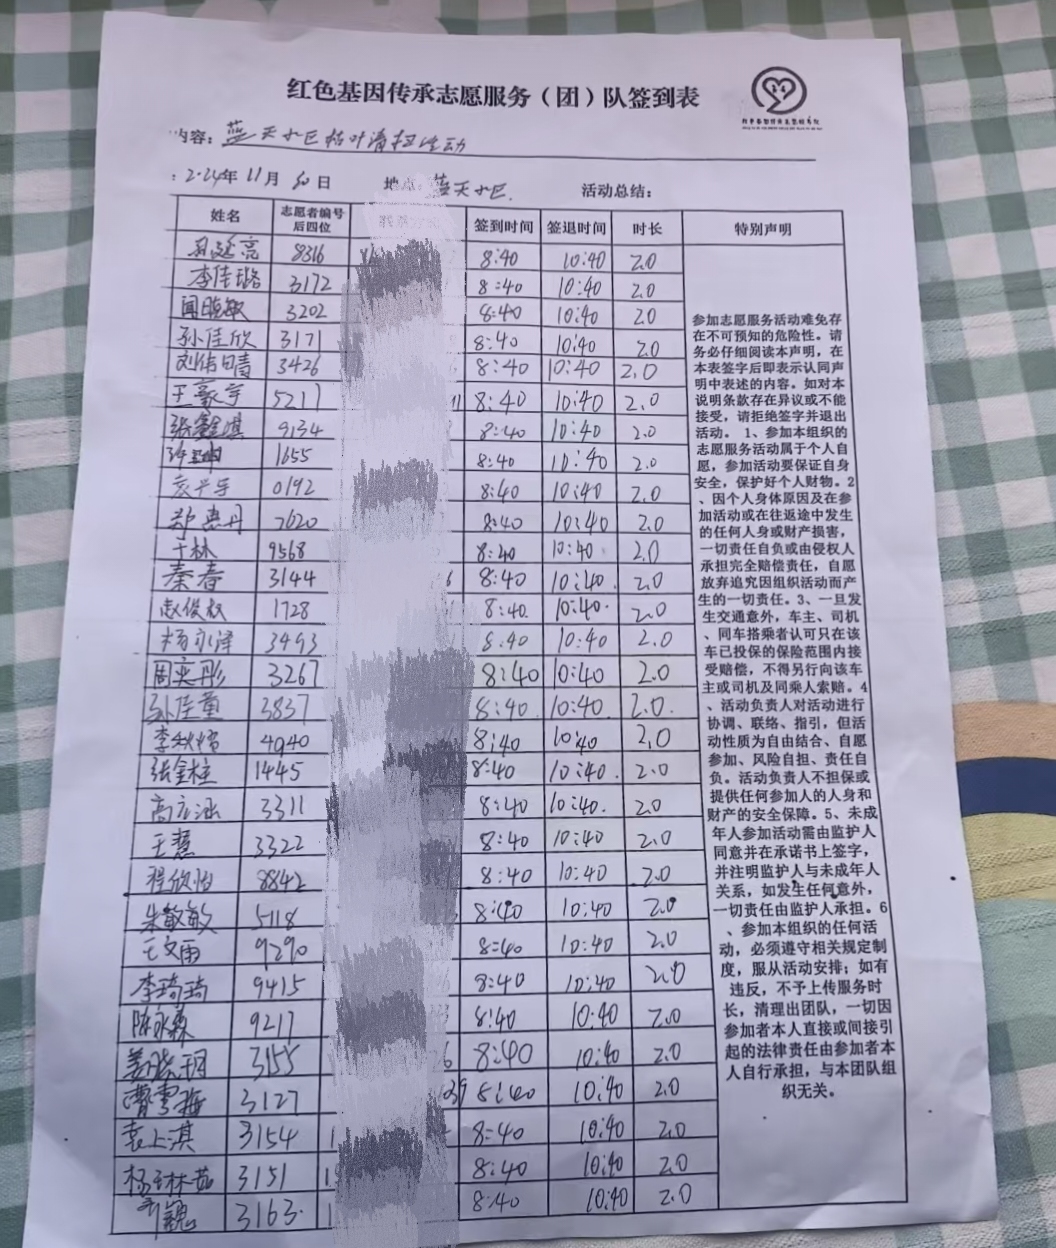 红色基因传承志愿服务（团）队签到表
内容：蓝天小区枯叶清扫活动
：2024年11月30日 地点：蓝天小区 活动总结：
姓名 志愿者编号后四位 签到时间 签退时间 时长 特别声明
8316 8:40 10:40 2.0
李佳璐 3172 8:40 10:40 2.0
闻晓敏 3202 8:40 10:40 2.0
孙佳欣 3171 8:40 10:40 2.0
刘倩晴 3426 8:40 10:40 2.0
王豪宇 5217 8:40 10:40 2.0
张鑫淇 9134 8:40 10:40 2.0
1655 8:40 10:40 2.0
0192 8:40 10:40 2.0
郑惠丹 7620 8:40 10:40 2.0
于林 9568 8:40 10:40 2.0
秦春 3144 8:40 10:40 2.0
赵俊 1728 8:40 10:40 2.0
杨永泽 3493 8:40 10:40 2.0
周奕彤 3267 8:40 10:40 2.0
孙佳童 3837 8:40 10:40 2.0
李秋 4940 8:40 10:40 2.0
张金柱 1445 8:40 10:40 2.0
高 3311 8:40 10:40 2.0
王慧 3322 8:40 10:40 2.0
程欣怡 8842 8:40 10:40 2.0
朱敏敏 5118 8:40 10:40 2.0
王文雨 9290 8:40 10:40 2.0
李琦琦 9415 8:40 10:40 2.0
陈永森 9217 8:40 10:40 2.0
姜晓玥 3155 8:40 10:40 2.0
曹雪梅 3127 8:40 10:40 2.0
袁上淇 3154 8:40 10:40 2.0
杨林茹 3151 8:40 10:40 2.0
3163 8:40 10:40 2.0
参加志愿服务活动难免存
在不可预知的危险性。请
务必仔细阅读本声明，在
本表签字后即表示认同声
明中表述的内容。如对本
说明条款存在异议或不能
接受，请拒绝签字并退出
活动。 1、参加本组织的
志愿服务活动属于个人自
愿，参加活动要保证自身
安全，保护好个人财物。2
、因个人身体原因及在参
加活动或在往返途中发生
的任何人身或财产损害，
一切责任自负或由侵权人
承担完全赔偿责任，自愿
放弃追究因组织活动而产
生的一切责任。3、一旦发
生交通意外，车主、司机
、同车搭乘者认可只在该
车已投保的保险范围内接
受赔偿，不得另行向该车
主或司机及同乘人索赔。4
、活动负责人对活动进行
协调、联络、指引，但活
动性质为自由结合、自愿
参加、风险自担、责任自
负。活动负责人不担保或
提供任何参加人的人身和
财产的安全保障。5、未成
年人参加活动需由监护人
同意并在承诺书上签字，
并注明监护人与未成年人
关系，如发生任何意外，
一切责任由监护人承担。6
、参加本组织的任何活
动，必须遵守相关规定制
度，服从活动安排；如有
违反，不予上传服务时
长，清理出团队，一切因
参加者本人直接或间接引
起的法律责任由参加者本
人自行承担，与本团队组
织无关。